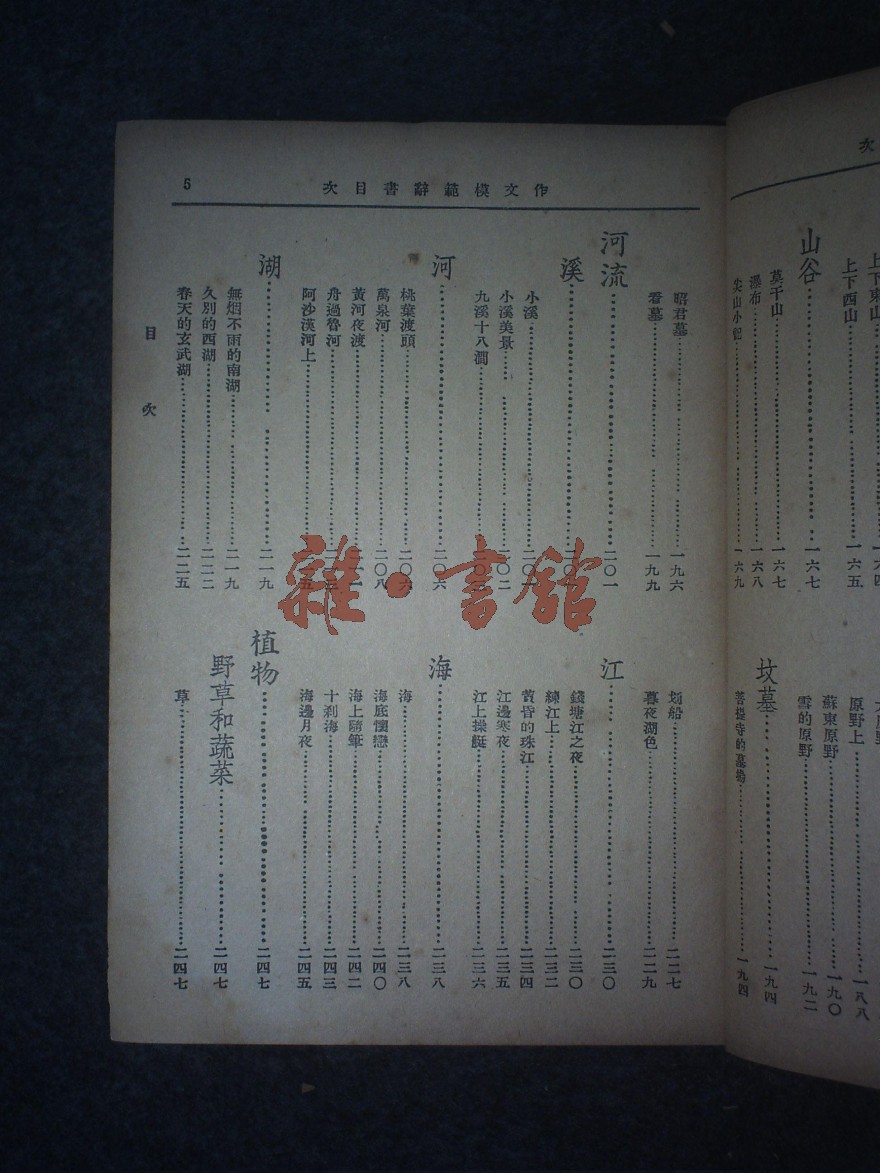 次
上下西山……一六五
山谷……一六七
莫干山……一六七
瀑布……一六八
尖山小記……一六九
原野上……一八八
蘇東原野……一九〇
雪的原野……一九二
坟墓……一九四
菩提寺的墓場……一九四
作文模範辭書目次
5
昭君墓……一九六
看墓……一九九
河流……二〇一
溪……二〇
小溪……二〇
小溪美景……二〇二
九溪十八澗……二〇
河……二〇六
桃葉渡頭……二〇六
萬泉河……二〇八
黃河夜渡……
舟過督河……
阿沙漢河上……
湖……二一九
無烟不雨的南湖……二一九
久別的西湖……二二二
春天的玄武湖……二二五
划船……二二七
暮夜湖色……二二九
江……二三〇
錢塘江之夜……二三〇
練江上……二三二
黃昏的珠江……二三四
江邊寒夜……二三五
江上操艇……二三六
海……二三八
海……二三八
海底懷戀……二四〇
海上隨筆……二四二
十刹海……二四三
海邊月夜……二四五
植物……二四七
野草和蔬菜……二四七
草……二四七
目次
雜·書館